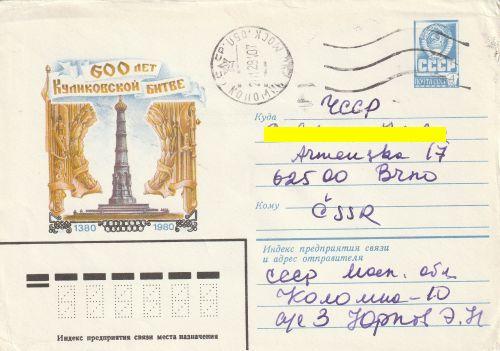 600 ЛЕТ
КУЛИКОВСКОЙ БИТВЕ
1380 1980
ПОЧТА СССР
Куда ЧССР
17
625 00 Brno
Кому ČSSR
Индекс предприятия связи
и адрес отправителя
СССР Моск. обл
Коломна-10
3
Индекс предприятия связи места назначения